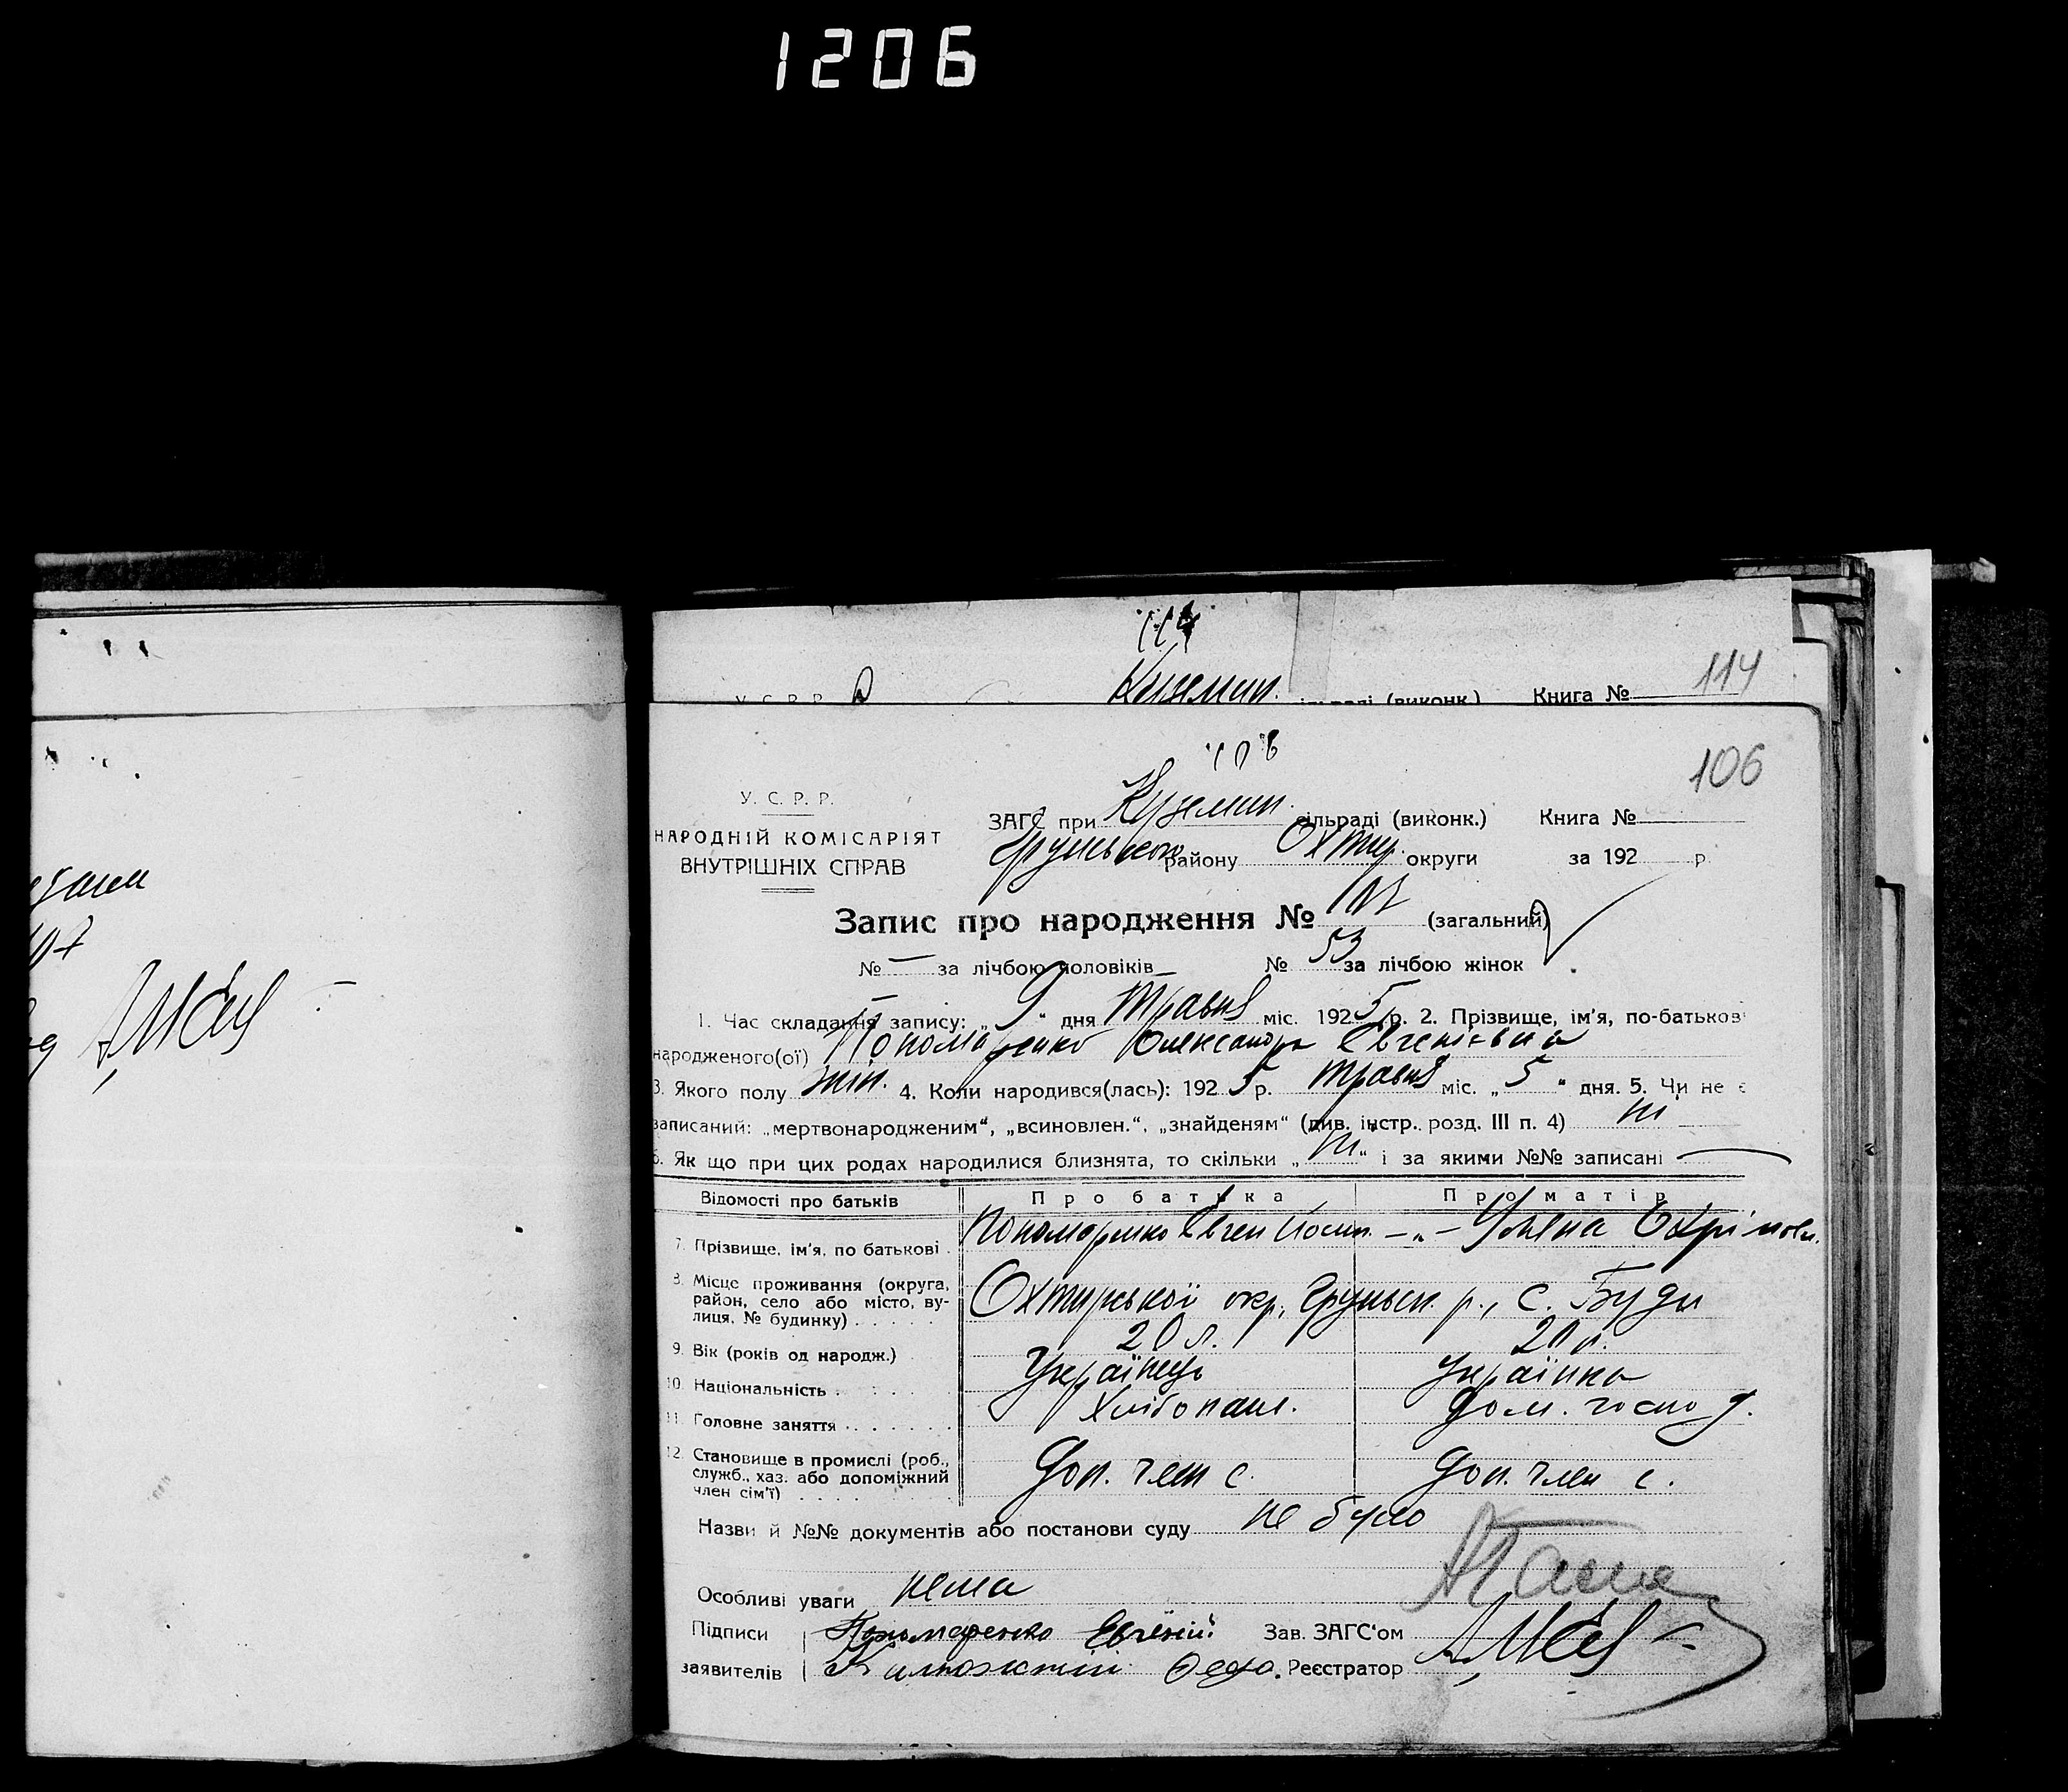 1206
114
Куземин. сільраді (виконк.) Книга № 114
У. С. Р. Р.
106
106
У. С. Р. Р.
НАРОДНІЙ КОМІСАРІЯТ
ВНУТРІШНІХ СПРАВ
ЗАГС при Куземин. сільраді (виконк.) Книга №
Грунського району Охтир. округи за 192 р.
Запис про народження № (загальний)
№ — за лічбою чоловіків № 53 за лічбою жінок
1. Час складання запису: „ 9 “ дня Травня міс. 1925 р. 2. Прізвище, ім'я, по-батькові
народженого(ої) Пономаренко Олександра Євгенівна
3. Якого полу жін. 4. Коли народився(лась): 1925 р. Травня міс. „ 5 “ дня. 5. Чи не є
записаний: „мертвонародженим“, „всиновлен.“, „знайденям“ (див. інстр. розд. III п. 4) ні
6. Як що при цих родах народилися близнята, то скільки „ ні “ і за якими №№ записані —
Відомості про батьків Про батька Про матір
7. Прізвище, ім'я, по батькові . Пономаренко Євген Йосип. —„— Уляна Охрімовн.
8. Місце проживання (округа, район, село або місто, вулиця, № будинку) . . . . . Охтирської окр., Грунськ. р., с. Буди
9. Вік (років од народж.) 20 л. 20 л.
10. Національність . . . . Українець Українка
11. Головне заняття . . . . . . Хлібопаш. Дом. господ.
12. Становище в промислі (роб., служб., хаз. або допоміжний член сім'ї) . . . . Доп. член с. Доп. член с.
Назви й №№ документів або постанови суду не було
Особливі уваги нема
Підписи Пономаренко Евгеній Зав. ЗАГС'ом
заявителів Реєстратор